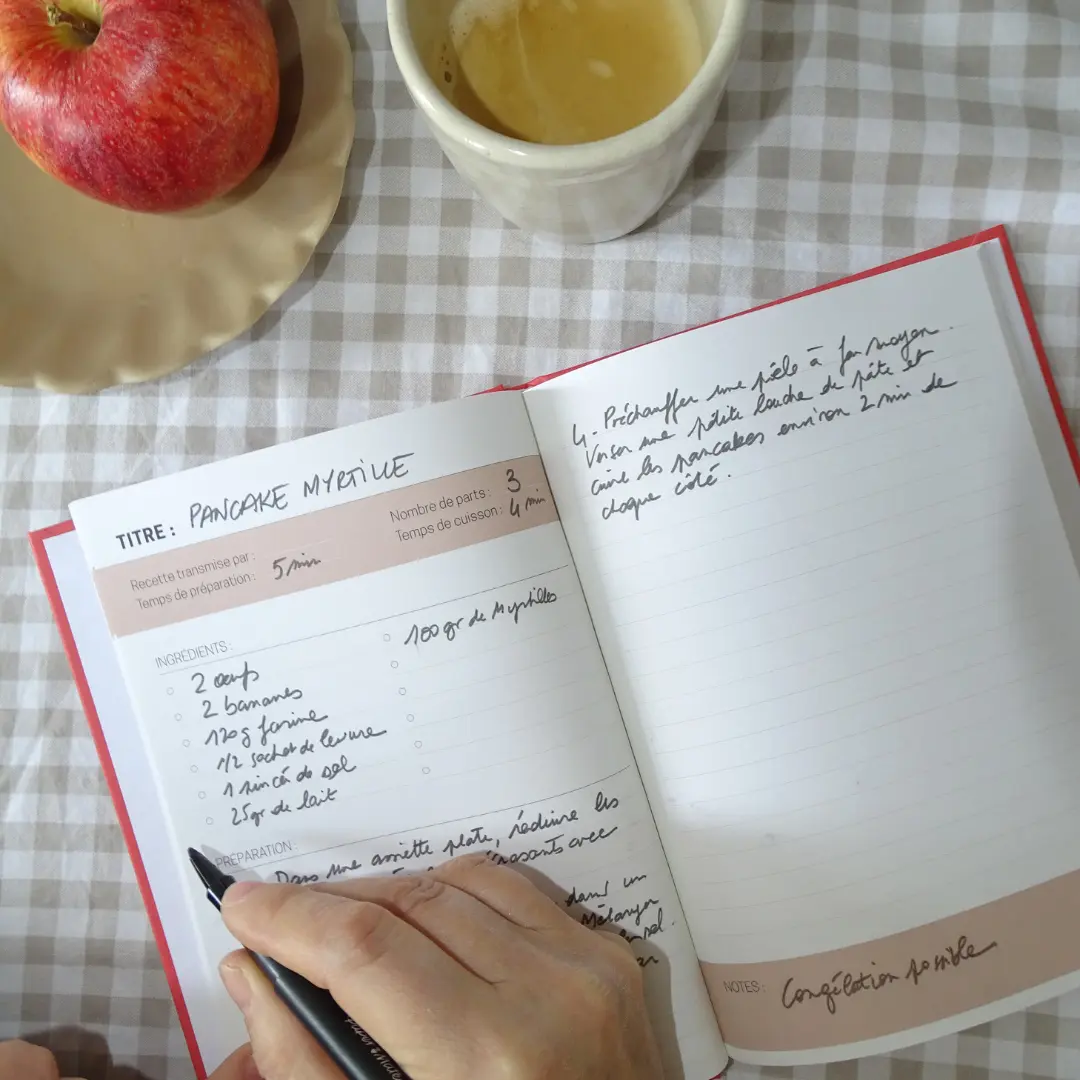 TITRE : PANCAKE MYRTILLE
Recette transmise par :
Temps de préparation : 5 min
Nombre de parts : 3
Temps de cuisson : 4 min
INGRÉDIENTS :
2 oeufs
2 bananes
120g farine
1/2 sachet de levure
1 pincée de sel
25gr de lait
100 gr de Myrtilles
PRÉPARATION :
Dans une assiette plate, réduire les
écrasants avec
dans un
Mélanger
sel.
4. Préchauffer une pôele à feu moyen.
Verser une petite louche de pâte et
cuire les pancakes environ 2 min de
chaque côté.
NOTES : Congélation possible
Paper Mate